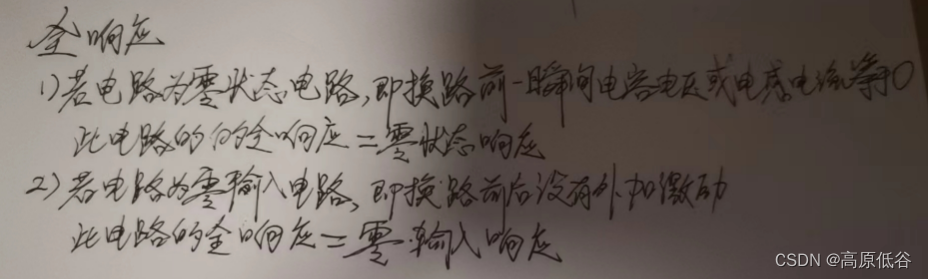 全响应
1)若电路为零状态电路,即换路前一瞬间电容电压或电感电流等于0
此电路的的全响应=零状态响应
2)若电路为零输入电路,即换路前后没有外加激励
此电路的全响应=零输入响应
CSDN @高原低谷